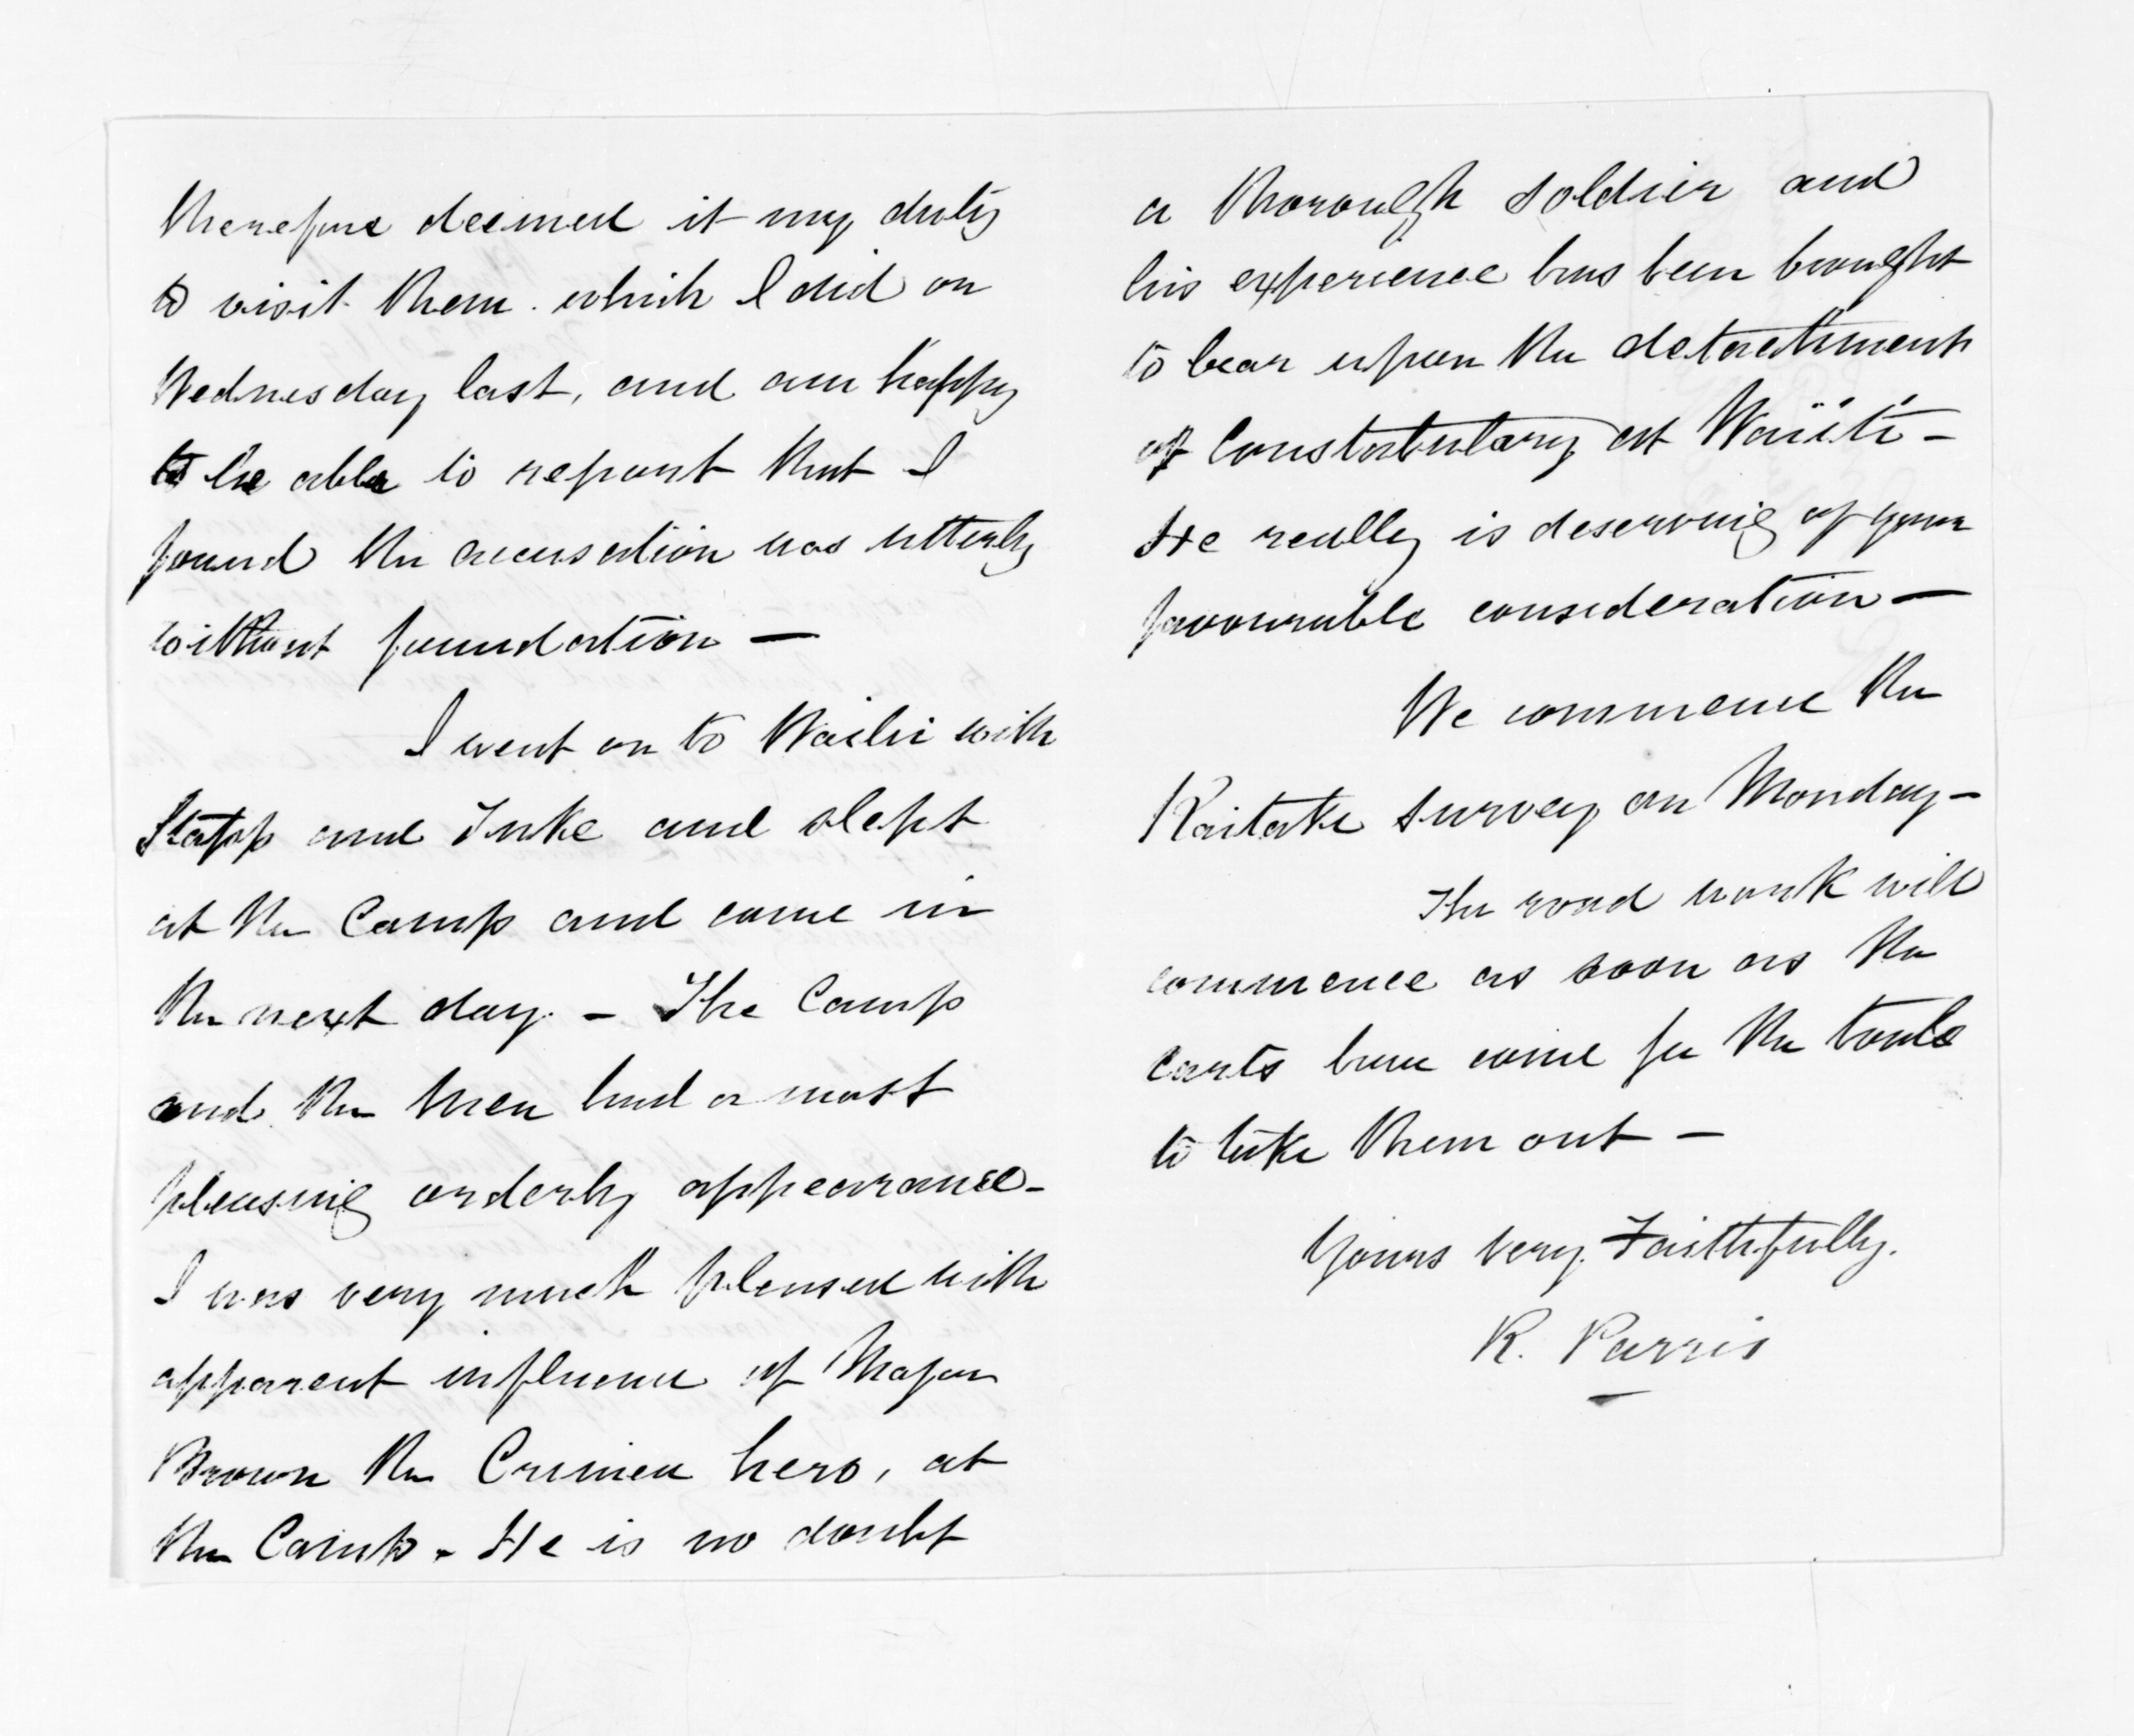 therefore deemed it my duty
to visit them. which I did on
Wednesday last, and am happy
to be able to report that I
found the accusation was utterly
without foundation —
I went on to Waiiti with
Stapp and Tuke and slept
at the Camp and came in
the next day. — The Camp
and the men had a most
pleasing orderly appearance —
I was very much pleased with
apparent influence of Major
Brown the Crimea hero, at
the Camp. He is no doubt
a thorough soldier and
his experience has been brought
to bear upon the detachment
of Constabulary at Waiiti —
He really is deserving of your
favourable consideration —
We commence the
Kaitake survey on Monday —
The road work will
commence as soon as the
carts have come for the tools
to take them out —
Yours very Faithfully.
R. Parris